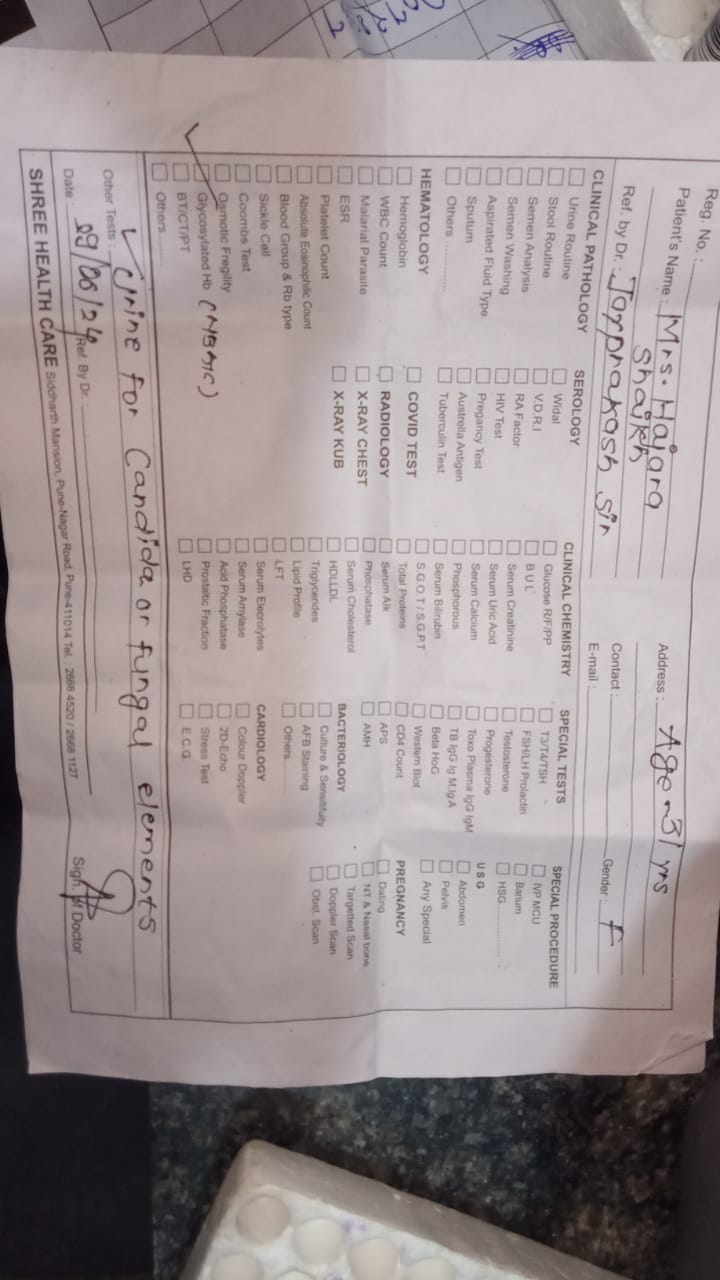 Reg. No. :
Patient's Name : Mrs. Hajara
Shaikh
Ref. by Dr. : Jayprakash Sir
Address : Age ~ 31 yrs
Contact :
Gender : F
E-mail :
CLINICAL PATHOLOGY
Urine Routine
Stool Routine
Semen Analysis
Semen Washing
Aspirated Fluid Type
Sputum
Others ............
HEMATOLOGY
Hemoglobin
WBC Count
Malarial Parasite
ESR
Platelet Count
Absolute Eosinophilic Count
Blood Group & Rb type
Sickle Cell
Coombs Test
Osmotic Fregility
Glycosylated Hb (HBA1C)
BT/CT/PT
Others
SEROLOGY
Widal
V.D.R.I
RA Factor
HIV Test
Pregancy Test
Austrella Antigen
Tuberculin Test
COVID TEST
RADIOLOGY
X-RAY CHEST
X-RAY KUB
CLINICAL CHEMISTRY
Glucose R/F/PP
B U L
Serum Creatinine
Serum Uric Acid
Serum Calcium
Phosphorous
Serum Bilirubin
S.G.O.T / S.G.P.T
Total Proteins
Serum Alk
Phosphatase
Serum Cholesterol
HDLLDL
Triglycerides
Lipid Profile
LFT
Serum Elecrolytes
Serum Amylase
Acid Phosphatase
Prostatic Fraction
LHD
SPECIAL TESTS
T3/T4/TSH
FSH/LH Prolactin
Testosterone
Progesterone
Toxo Plasma IgG IgM
TB IgG Ig M,Ig A
Beta HoG
Western Blot
CD4 Count
APS
AMH
BACTERIOLOGY
Culture & Sensitifuty
AFB Staining
Others ............
CARDIOLOGY
Colour Doppler
2D-Echo
Stress Test
E.C.G.
SPECIAL PROCEDURE
IVP MCU
Barium
HSG ............
U S G
Abdomen
Pelvis
Any Special
PREGNANCY
Dating
NT & Nasal bone
Targetted Scan
Doppler Scan
Obst. Scan
Other Tests : Urine for Candida or fungal elements
Date : 09/06/24 Ref. By Dr :
Sign. of Doctor
SHREE HEALTH CARE Siddharth Mansion, Pune-Nagar Road, Pune-411014 Tel. : 2668 4520 / 2668 1127